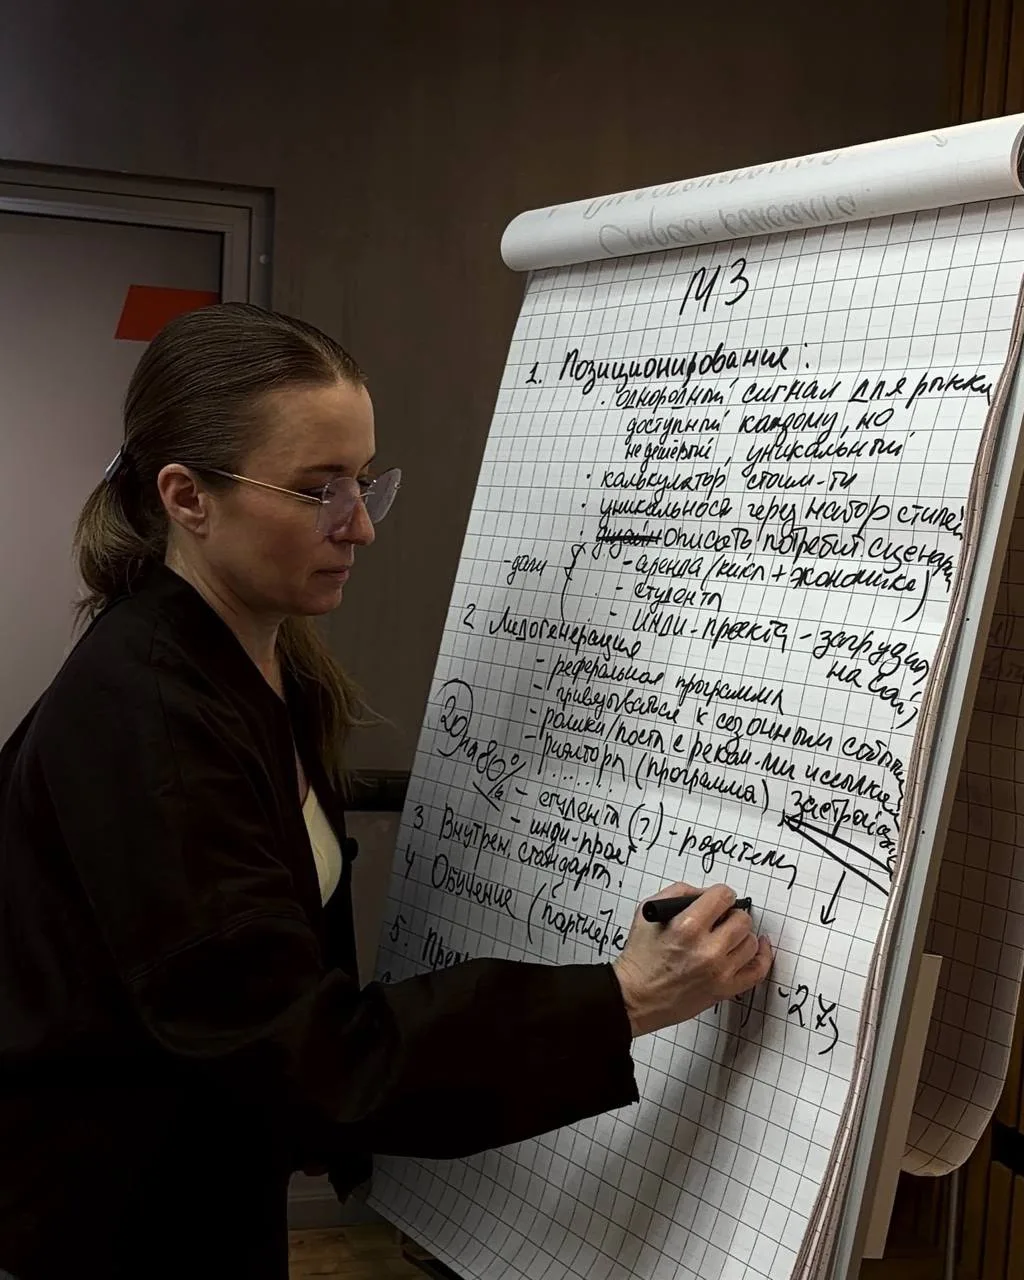 Страт.
М3
1. Позиционирование:
· однородный сигнал для рынка
доступный каждому, но
не дешёвый, уникальный
· калькулятор стоим-ти
· уникальность через набор стилей
· описать потребит сценари
- аренда (кикл + экономика)
- студента
- инди-проекта - загрузить
на сай
2 Лидогенерация
- реферальная программа
- привязываться к сезонным событи
- ролики/посты с реком-ми и ссылка
- риэлторы (программа) застройщ
......
20 на 80%
- студента (?) - родители
- инди-проект
3 Внутрен. стандарты.
4 Обучение (партнёрк
5.
- 2